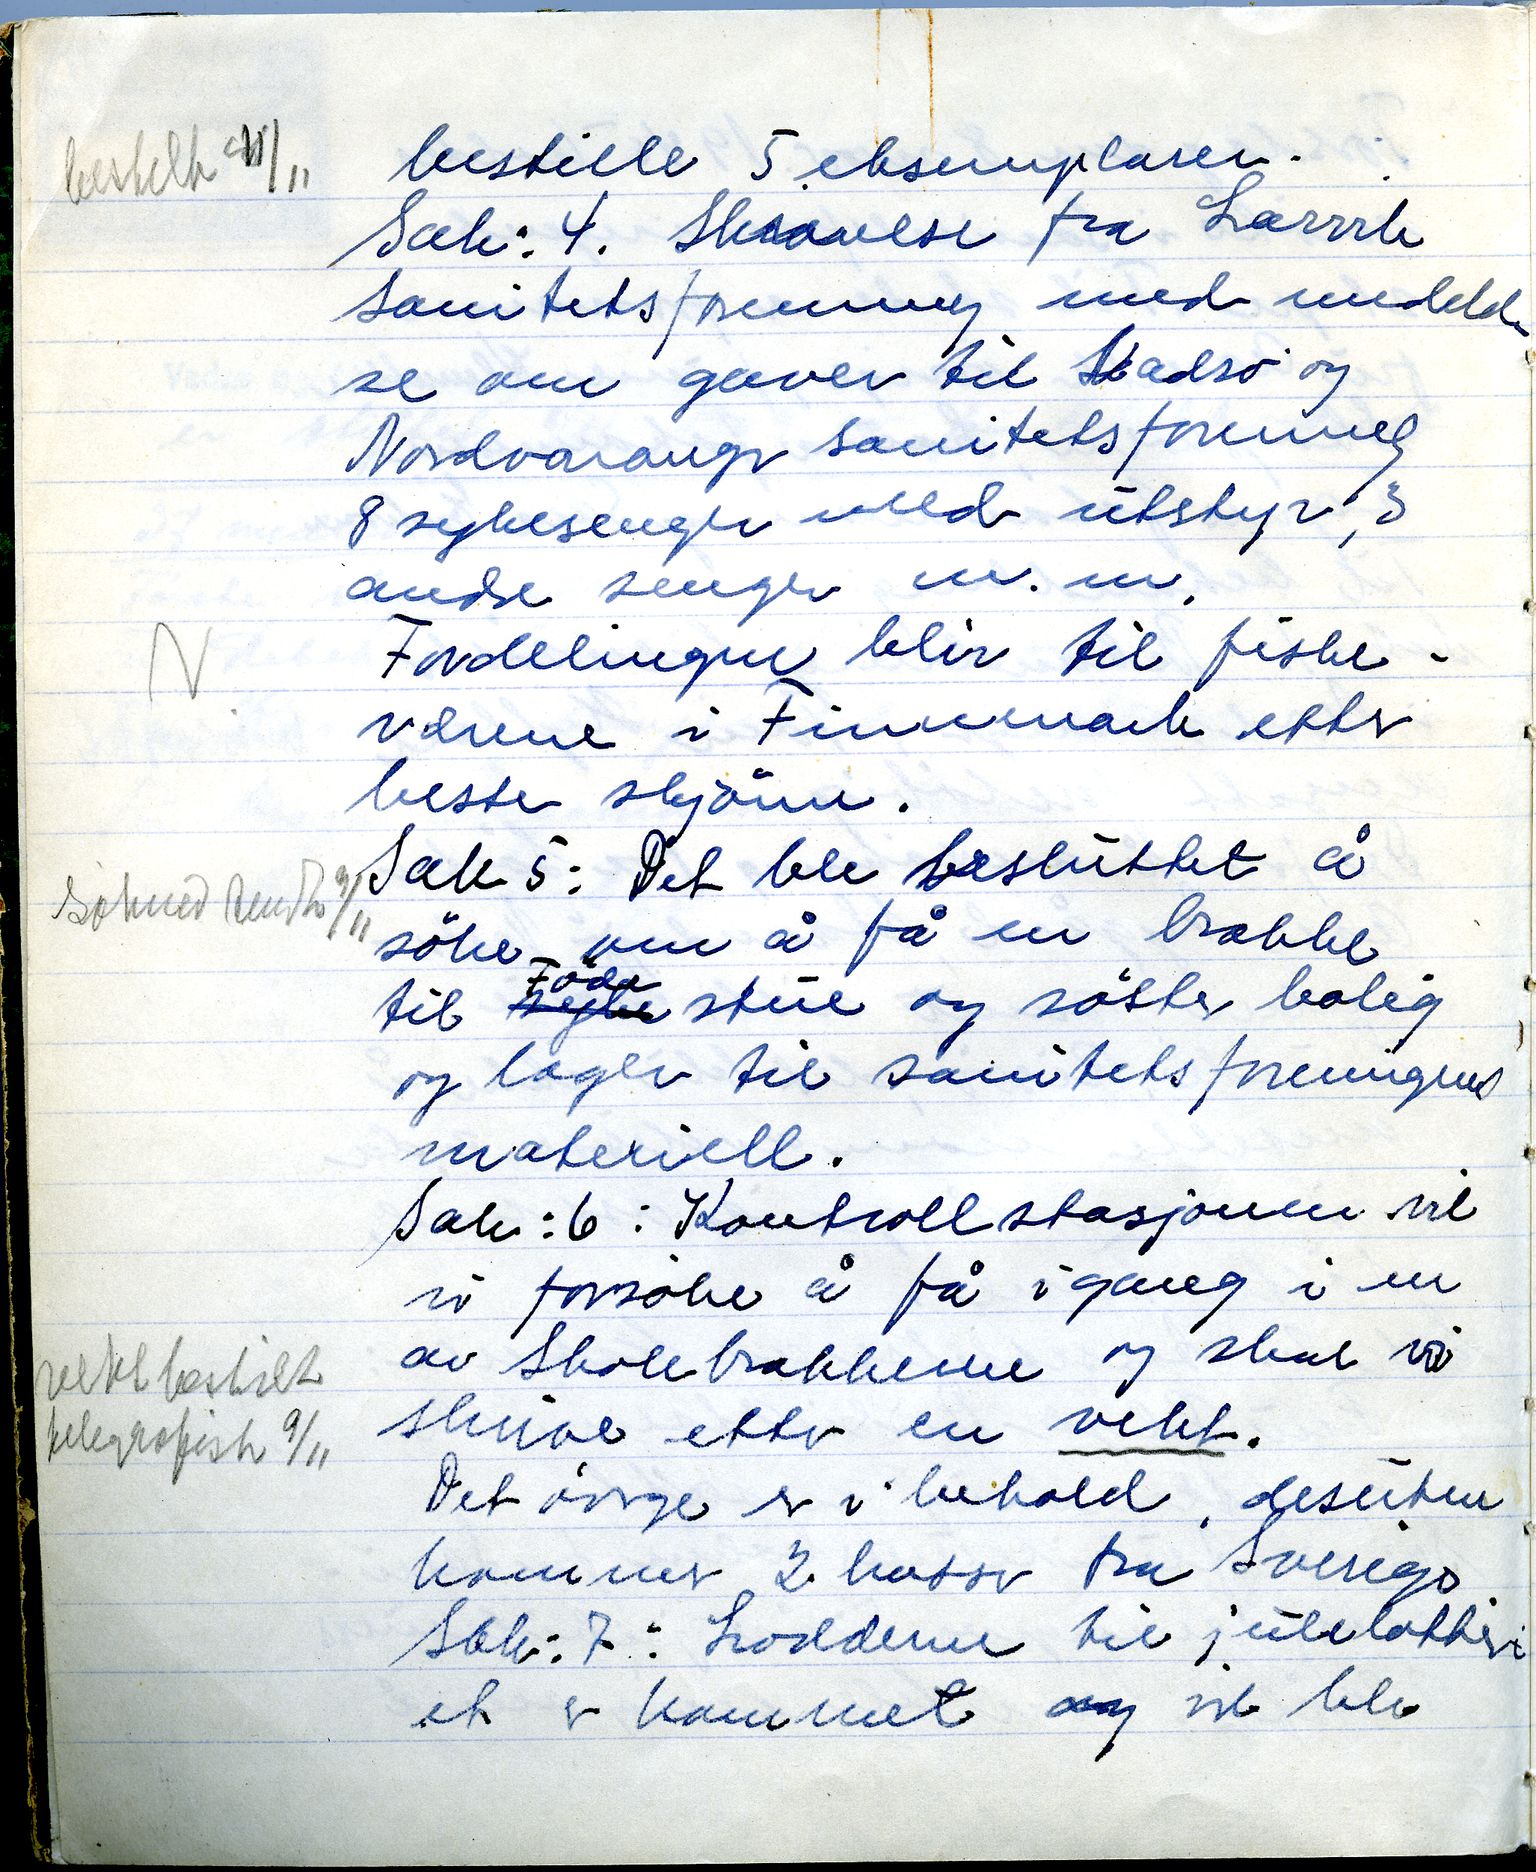 bestilt 9/11
bestille 5 eksemplarer.
Sak: 4. Skrivelse fra Larvik
Sanitetsforening med meddel-
se om gaver til Vadsö og
Nordvaranger Sanitetsforening
8 sykesenger med utstyr, 3
andre senger m.m.
Fordelingen blir til fiske-
værene i Finnmark etter
beste skjönn.
Sak 5: Det ble besluttet å
söknad sendt 9/11
söke om å få en brakke
Föde
til syke stue og söster bolig
og lager til sanitetsforeningens
materiell.
Sak: 6: Kontrollstasjonen vil
vi forsöke å få igang i en
av Skolebrakkene og skal vi
vekt bestilt
skrive etter en vekt.
telegrafisk 9/11
Det övrige er i behold, desuten
kommer 2 kasser fra Sverige
Sak: 7: Loddene til julelotteri
et er kommet og vil ble